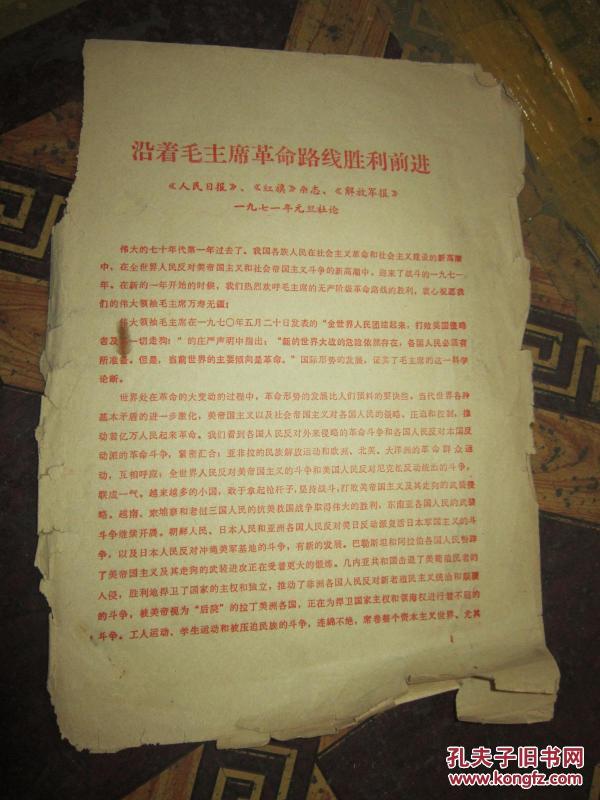 沿着毛主席革命路线胜利前进
《人民日报》、《红旗》杂志、《解放军报》
一九七一年元旦社论
伟大的七十年代第一年过去了。我国各族人民在社会主义革命和社会主义建设的新高潮
中,在全世界人民反对美帝国主义和社会帝国主义斗争的新高潮中,迎来了战斗的一九七一
年。在新的一年开始的时候,我们热烈欢呼毛主席的无产阶级革命路线的胜利,衷心祝愿我
们的伟大领袖毛主席万寿无疆!
伟大领袖毛主席在一九七〇年五月二十日发表的“全世界人民团结起来,打败美国侵略
者及其一切走狗!”的庄严声明中指出:“新的世界大战的危险依然存在,各国人民必须有
所准备。但是,当前世界的主要倾向是革命。”国际形势的发展,证实了毛主席的这一科学
论断。
世界处在革命的大变动的过程中,革命形势的发展比人们预料的要快些。当代世界各种
基本矛盾的进一步激化,美帝国主义以及社会帝国主义对各国人民的侵略、压迫和控制,推
动着亿万人民起来革命。我们看到各国人民反对外来侵略的革命斗争和各国人民反对本国反
动派的革命斗争,紧密汇合;亚非拉的民族解放运动和欧洲、北美、大洋洲的革命群众运动,
互相呼应;全世界人民反对美帝国主义的斗争和美国人民反对尼克松反动统治的斗争,
联成一气。越来越多的小国,敢于拿起枪杆子,坚持战斗,打败美帝国主义及其走狗的武装侵
略。越南、柬埔寨和老挝三国人民的抗美救国战争取得伟大的胜利,东南亚各国人民的武装
斗争继续开展。朝鲜人民、日本人民和亚洲各国人民反对美日反动派复活日本军国主义的斗
争,以及日本人民反对冲绳美军基地的斗争,有新的发展。巴勒斯坦和阿拉伯各国人民
了美帝国主义及其走狗的武装进攻正在受着更大的锻炼。几内亚共和国击退了美葡殖民者的
入侵,胜利地捍卫了国家的主权和独立,推动了非洲各国人民反对新老殖民主义统治和颠覆
的斗争。被美帝视为“后院”的拉丁美洲各国,正在为捍卫国家主权和领海权进行着不屈的
斗争。工人运动、学生运动和被压迫民族的斗争,连绵不绝,席卷整个资本主义世界、尤其
孔夫子旧书网
www.kongfz.com